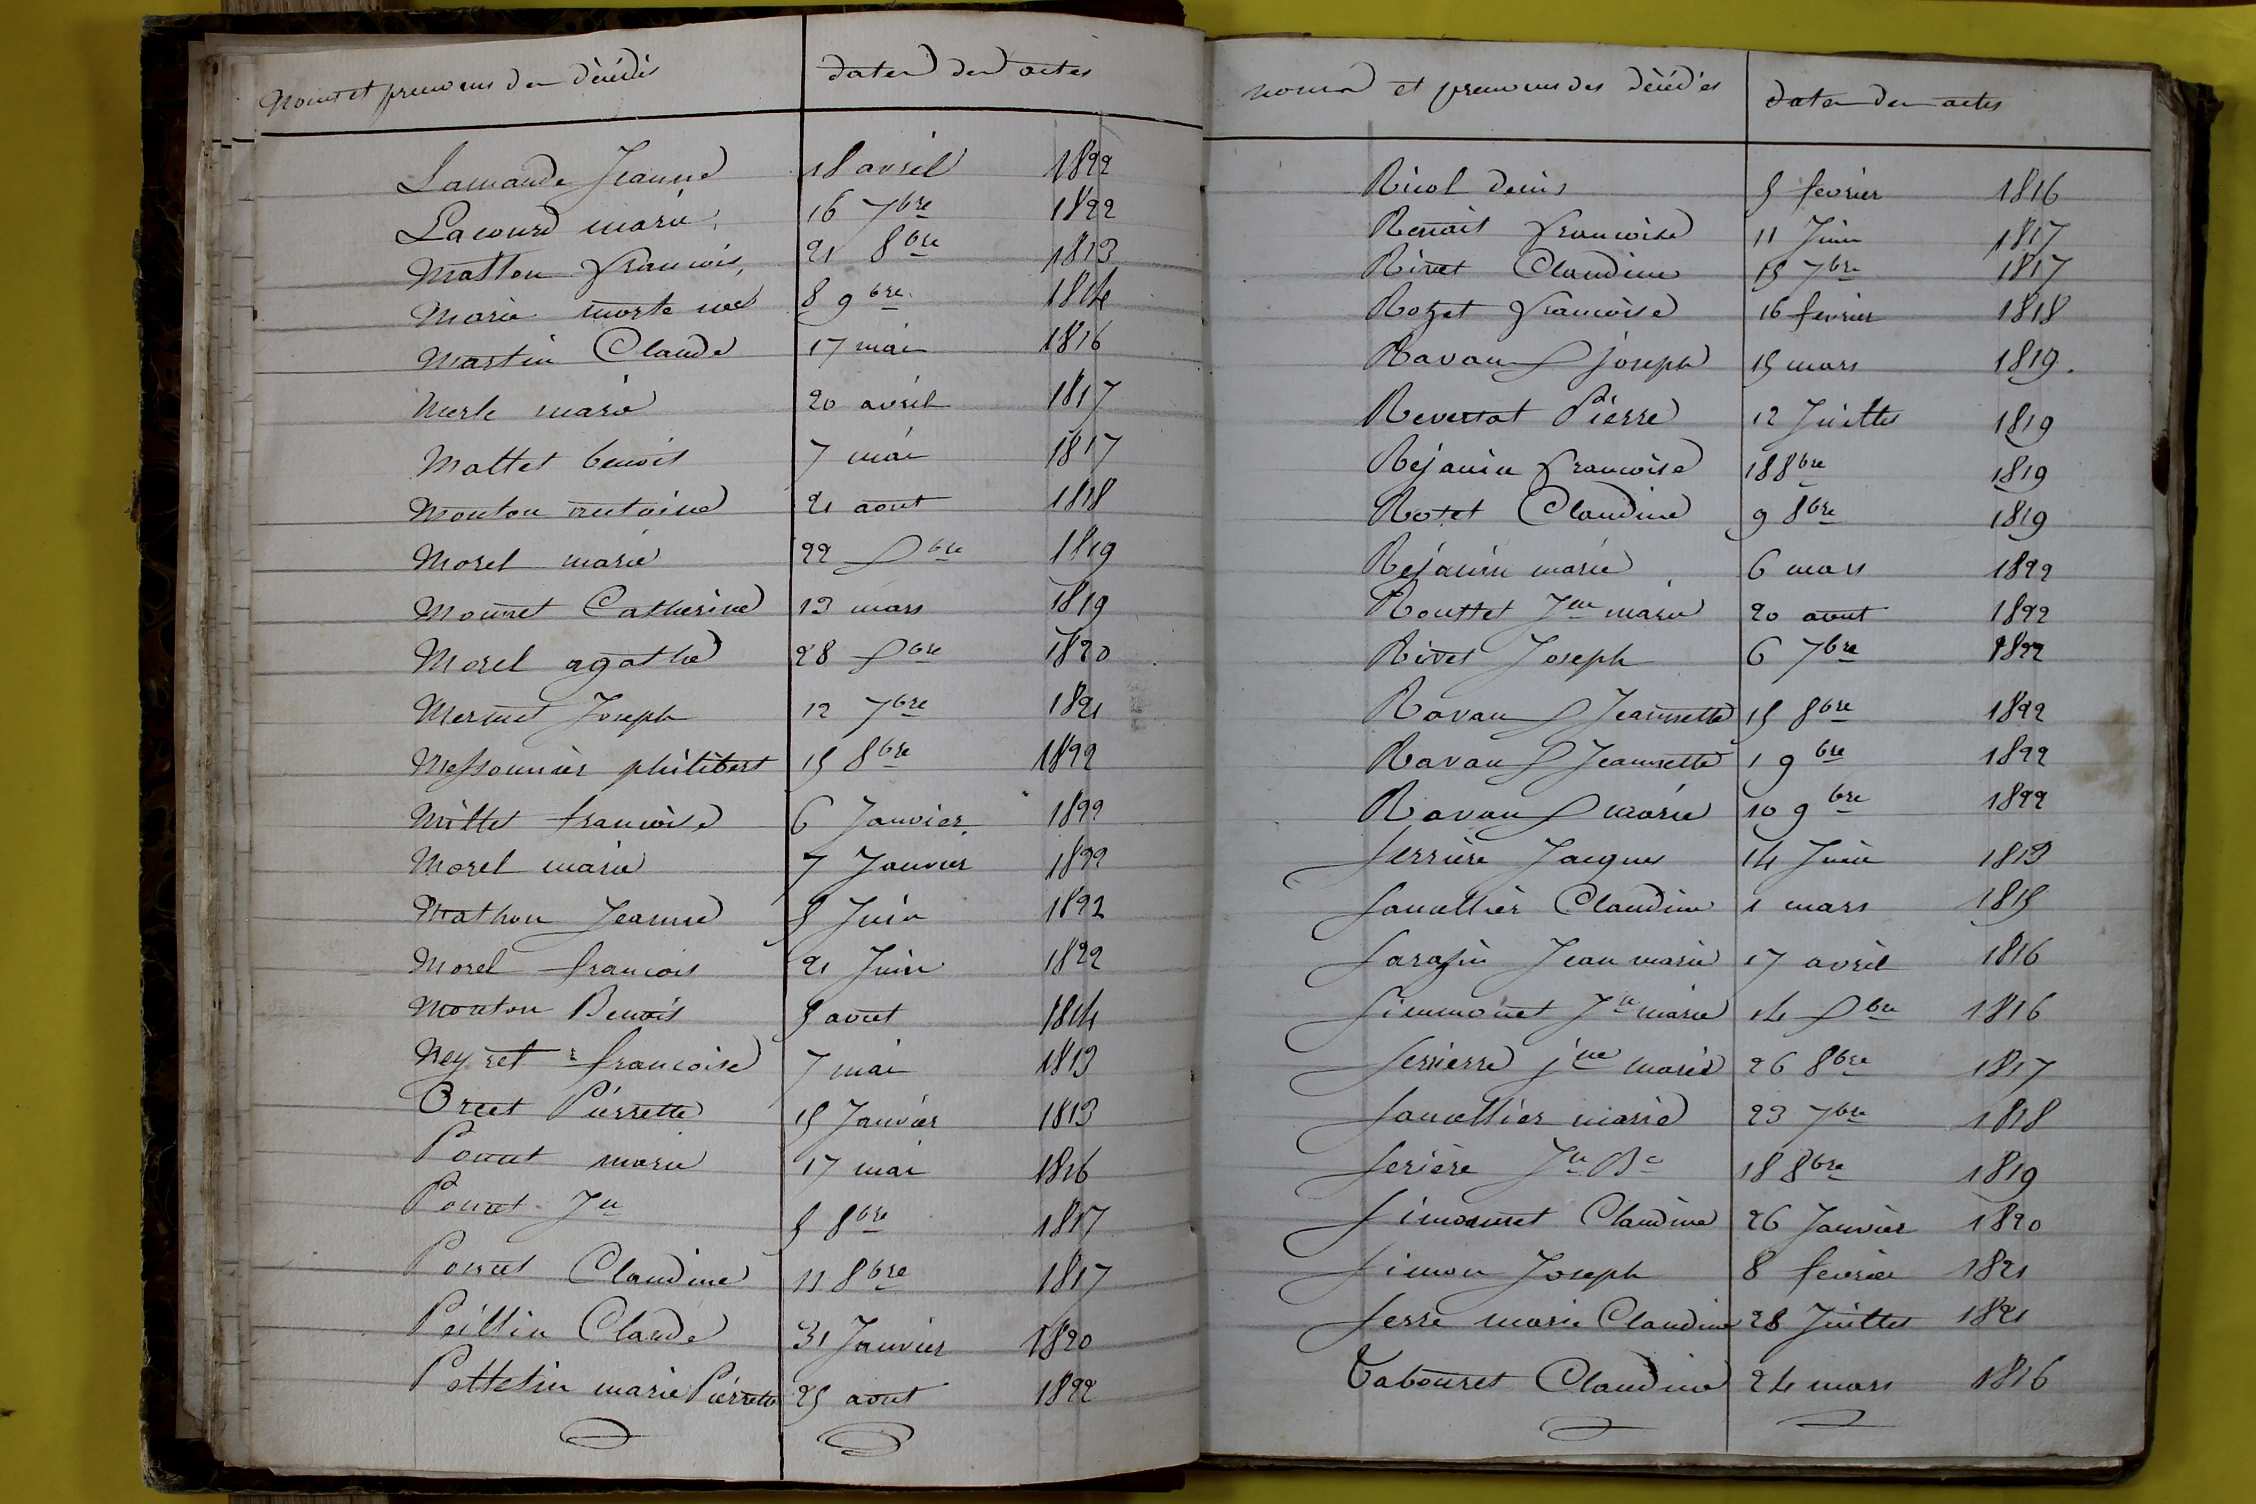 noms et prenoms des décédés dates des actes
Lamande Jeanne 18 avril 1822
Lacourd marie 16 7bre 1822
Matton francois 21 8bre 1813
Marie morte née 8 9bre 1814
Martin Claude 17 mai 1816
Merle marie 20 avril 1817
Mattet benoit 7 mai 1817
Mouton antoine 21 aout 1818
Morel marie 22 Xbre 1819
Mounet Catherine 13 mars 1819
Morel agathe 28 Xbre 1820
Mermet Joseph 12 7bre 1821
Messonnier philibert 15 8bre 1822
Millet francoise 6 Janvier 1822
Morel marie 7 Janvier 1822
Mathon Jeanne 5 Juin 1822
Morel francois 21 Juin 1822
Mouton Benoit 5 aout 1814
Neyret francoise 7 mai 1813
Orcet Pierrette 15 Janvier 1813
Poncet marie 17 mai 1816
Poncet Jn 5 8bre 1817
Poncet Claudine 11 8bre 1817
Peillin Claude 31 Janvier 1820
Pettetin marie Pierrette 25 aout 1822
noms et prenoms des décédés dates des actes
Ricol denis 5 fevrier 1816
Renait francoise 11 Juin 1817
Rivet Claudine 15 7bre 1817
Rozet francoise 16 fevrier 1818
Ravaux joseph 15 mars 1819.
Reversat Pierre 12 Juillet 1819
Rejanin francoise 18 8bre 1819
Rotet Claudine 9 8bre 1819
Rejanin marie 6 mars 1822
Routtet Jne marie 20 aout 1822
Rivet Joseph 6 7bre 1822
Ravaux Jeannette 15 8bre 1822
Ravaux Jeannette 1 9bre 1822
Ravaux marie 10 9bre 1822
Serrière Jacques 14 Juin 1813
Sauvethier Claudine 1 mars 1815
Sarazin Jean marie 17 avril 1816
Simmonet Jn marie 14 Xbre 1816
Serrierre jne marie 26 8bre 1817
Sauvethier marie 23 7bre 1818
Serière Jn Be 18 8bre 1819
Simonnet Claudine 26 Janvier 1820
Simon Joseph 8 fevrier 1821
Serre marie Claudine 28 Juillet 1821
Tabouret Claudine 24 mars 1816